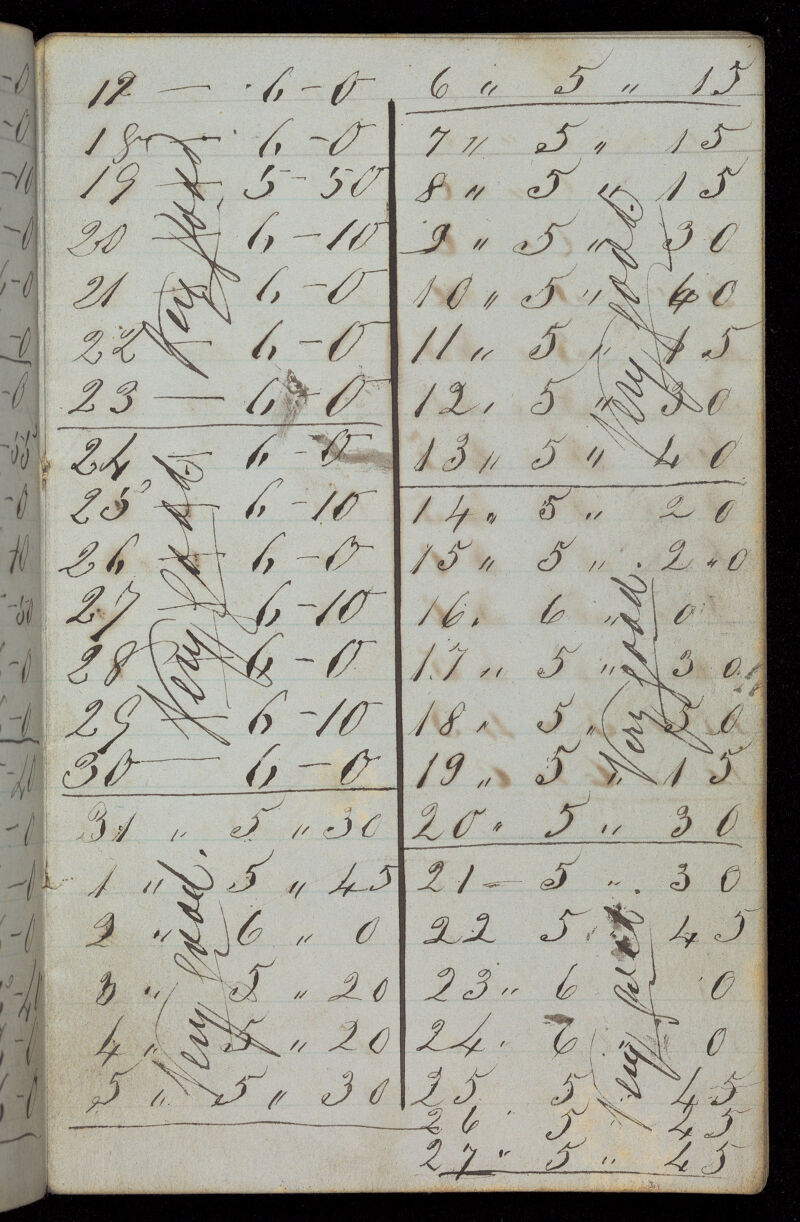 12 — 6 – 0
18 — 6 – 0
19 — 5 – 50
20 6 – 10
21 6 – 0
22 — 6 – 0
23 — 6 – 0
Very Good
24 6 – 0
25 — 6 – 10
26 — 6 – 0
27 6 – 10
28 6 – 0
29 6 – 10
30 — 6 – 0
Very Good
31 " 5 " 30
1 " 5 " 45
2 " 6 " 0
3 " 5 " 20
4 " 5 " 20
5 " 5 " 30
Very Good.
6 " 5 " 15
7 " 5 " 15
8 " 5 " 15
9 " 5 " 30
10 " 5 " 40
11 " 5 " 15
12 " 5 " 30
13 " 5 " 40
Very Good.
14 " 5 " 20
15 " 5 " 20
16 " 6 " 0
17 " 5 " 30
18 " 5 " 50
19 " 5 " 15
20 " 5 " 30
Very Good
21 — 5 " 30
22 5 45
23 " 6 0
24 " 6 0
25 5 45
26 " 5 " 45
27 " 5 " 45
Very Good